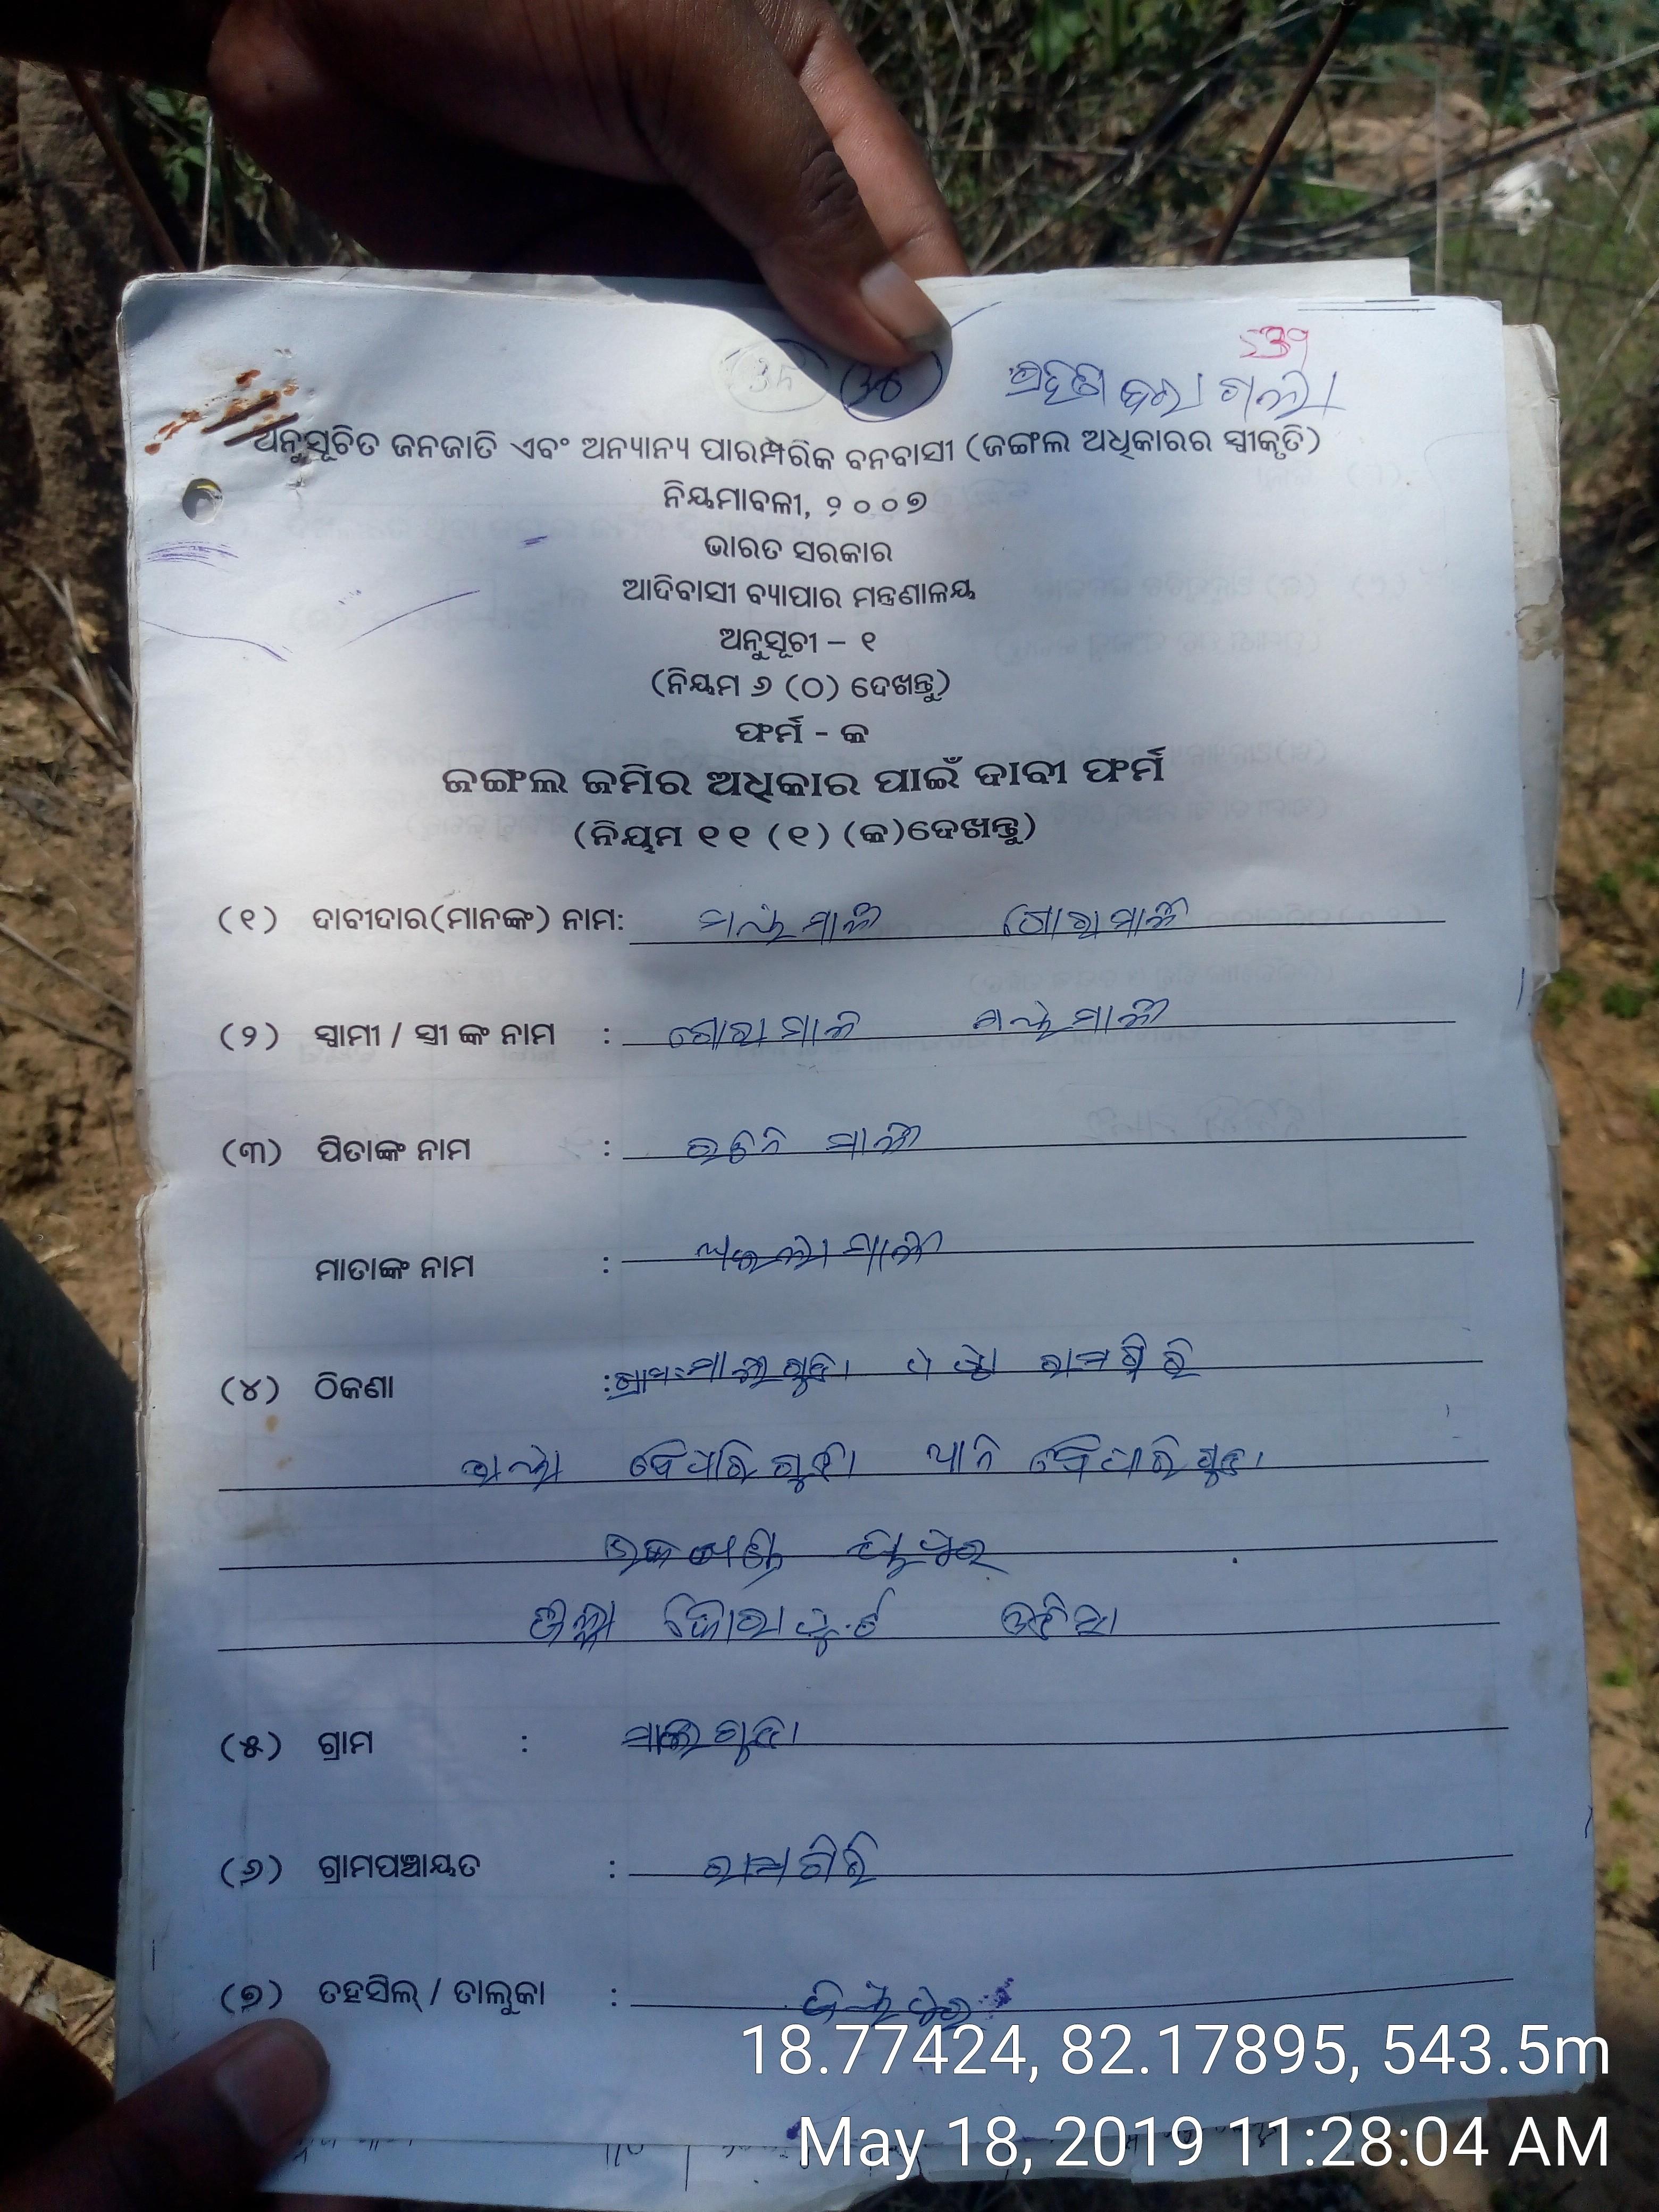 ୨୩୨
ଗ୍ରହଣ କରା ଗଲା
ଅନୁସୂଚିତ ଜନଜାତି ଏବଂ ଅନ୍ୟାନ୍ୟ ପାରମ୍ପରିକ ବନବାସୀ (ଜଙ୍ଗଲ ଅଧିକାରର ସ୍ୱୀକୃତି)
ନିୟମାବଳୀ, ୨୦୦୭
ଭାରତ ସରକାର
ଆଦିବାସୀ ବ୍ୟାପାର ମନ୍ତ୍ରଣାଳୟ
ଅନୁସୂଚୀ – ୧
(ନିୟମ ୬ (ଠ) ଦେଖନ୍ତୁ)
ଫର୍ମ - କ
ଜଙ୍ଗଲ ଜମିର ଅଧିକାର ପାଇଁ ଦାବୀ ଫର୍ମ
(ନିୟମ ୧୧ (୧) (କ) ଦେଖନ୍ତୁ)
(୧) ଦାବୀଦାର(ମାନଙ୍କ) ନାମ: ମାଳୀ ଗୋରା ମାଳୀ
(୨) ସ୍ୱାମୀ / ସ୍ତ୍ରୀ ଙ୍କ ନାମ : ଗୋରା ମାଳି ମାଳୀ
(୩) ପିତାଙ୍କ ନାମ : ମାଳୀ
ମାତାଙ୍କ ନାମ : ମାଳୀ
(୪) ଠିକଣା : ଗ୍ରାମ: ମାଲିଗୁଡା ପୋଷ୍ଟ ରାମଗିରି
ଭାୟା ବୈପାରିଗୁଡା ଥାନା ବୈପାରିଗୁଡା
ଜୟପୁର
ଜିଲ୍ଲା କୋରାପୁଟ ଓଡିଶା
(୫) ଗ୍ରାମ : ମାଲିଗୁଡା
(୬) ଗ୍ରାମପଞ୍ଚାୟତ : ରାମଗିରି
(୭) ତହସିଲ୍ / ତାଲୁକା : ଜୟପୁର
18.77424, 82.17895, 543.5m
May 18, 2019 11:28:04 AM